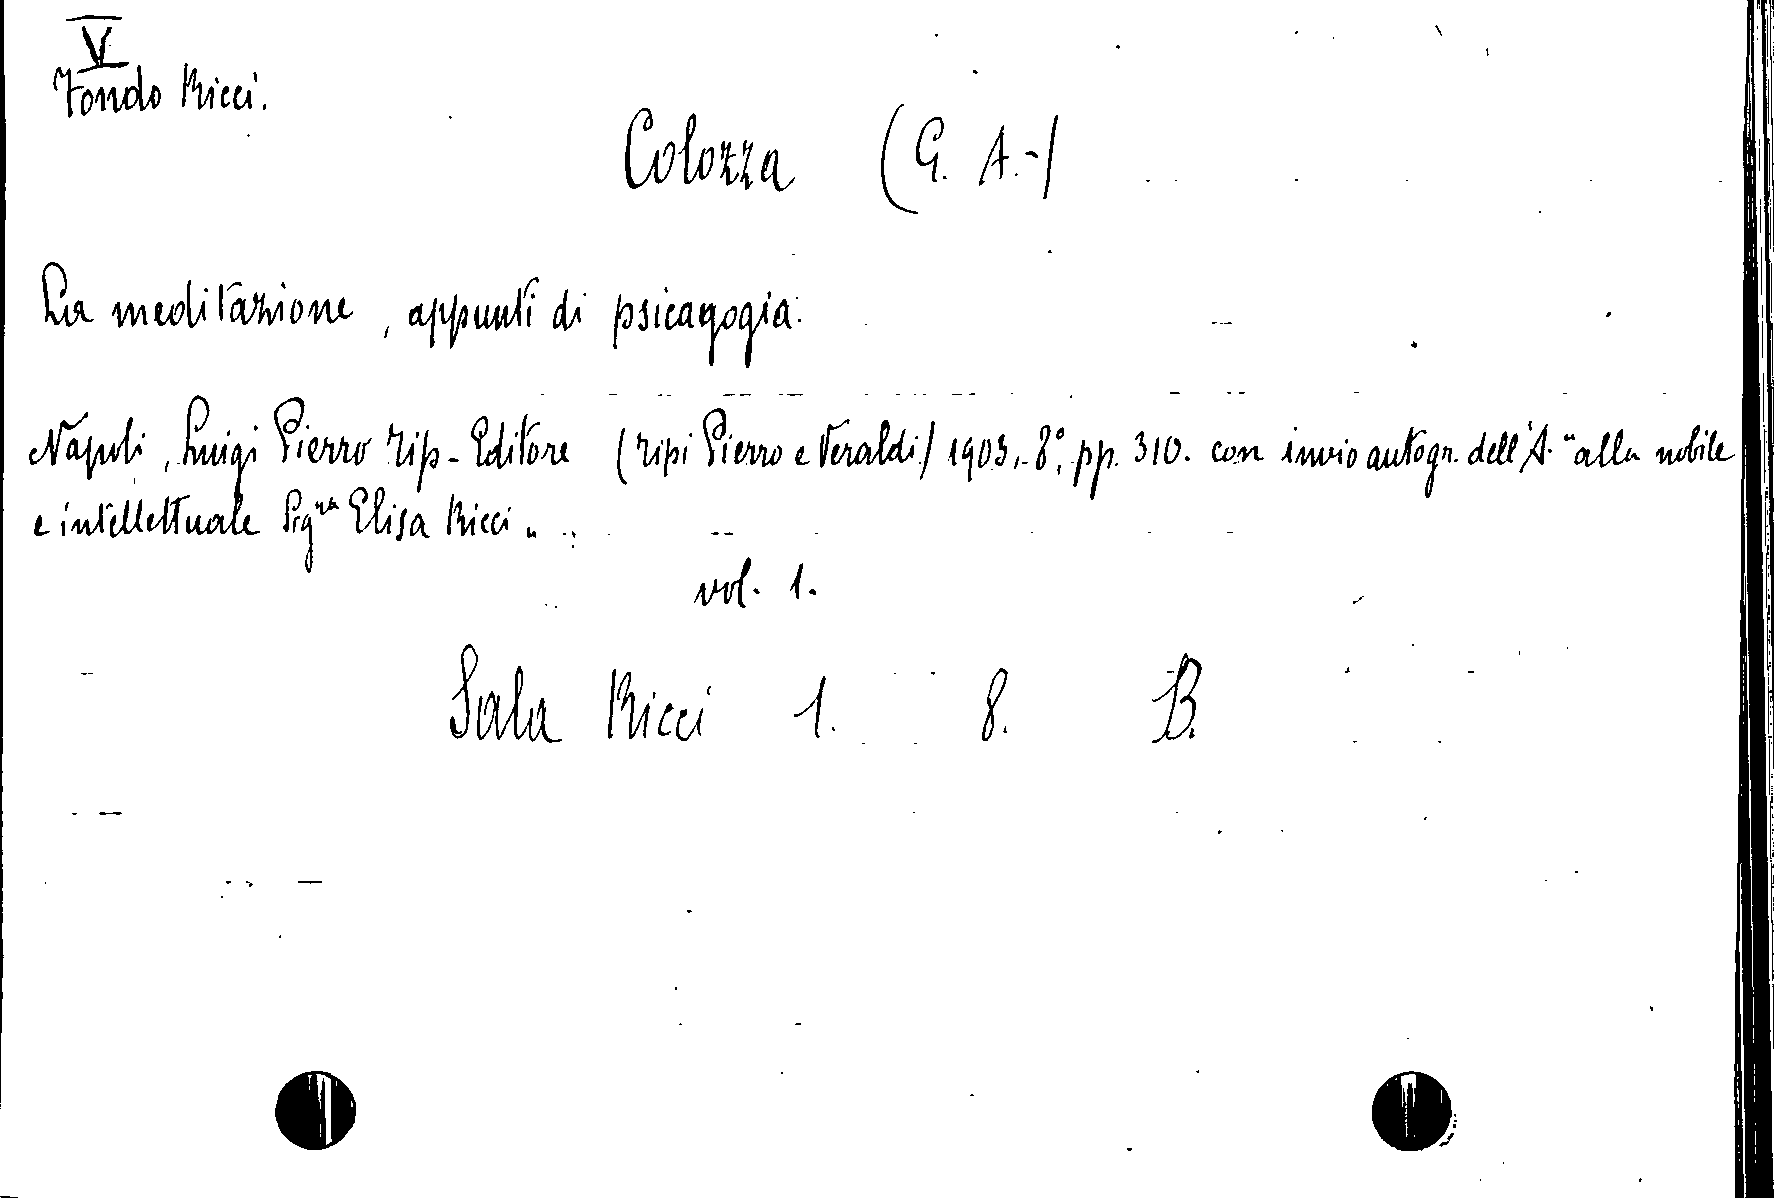 V
Fondo Ricci.
Colozza (G. A.-)
La meditazione, appunti di psicagogia.
Napoli, Luigi Pierro Tip-Editore (Tipi Pierro e Veraldi) 1903,-8°, pp. 310. con invio autogr. dell'A. "alla nobile
e intellettuale Sigra Elisa Ricci„
vol. 1.
Sala Ricci 1. 8. B.